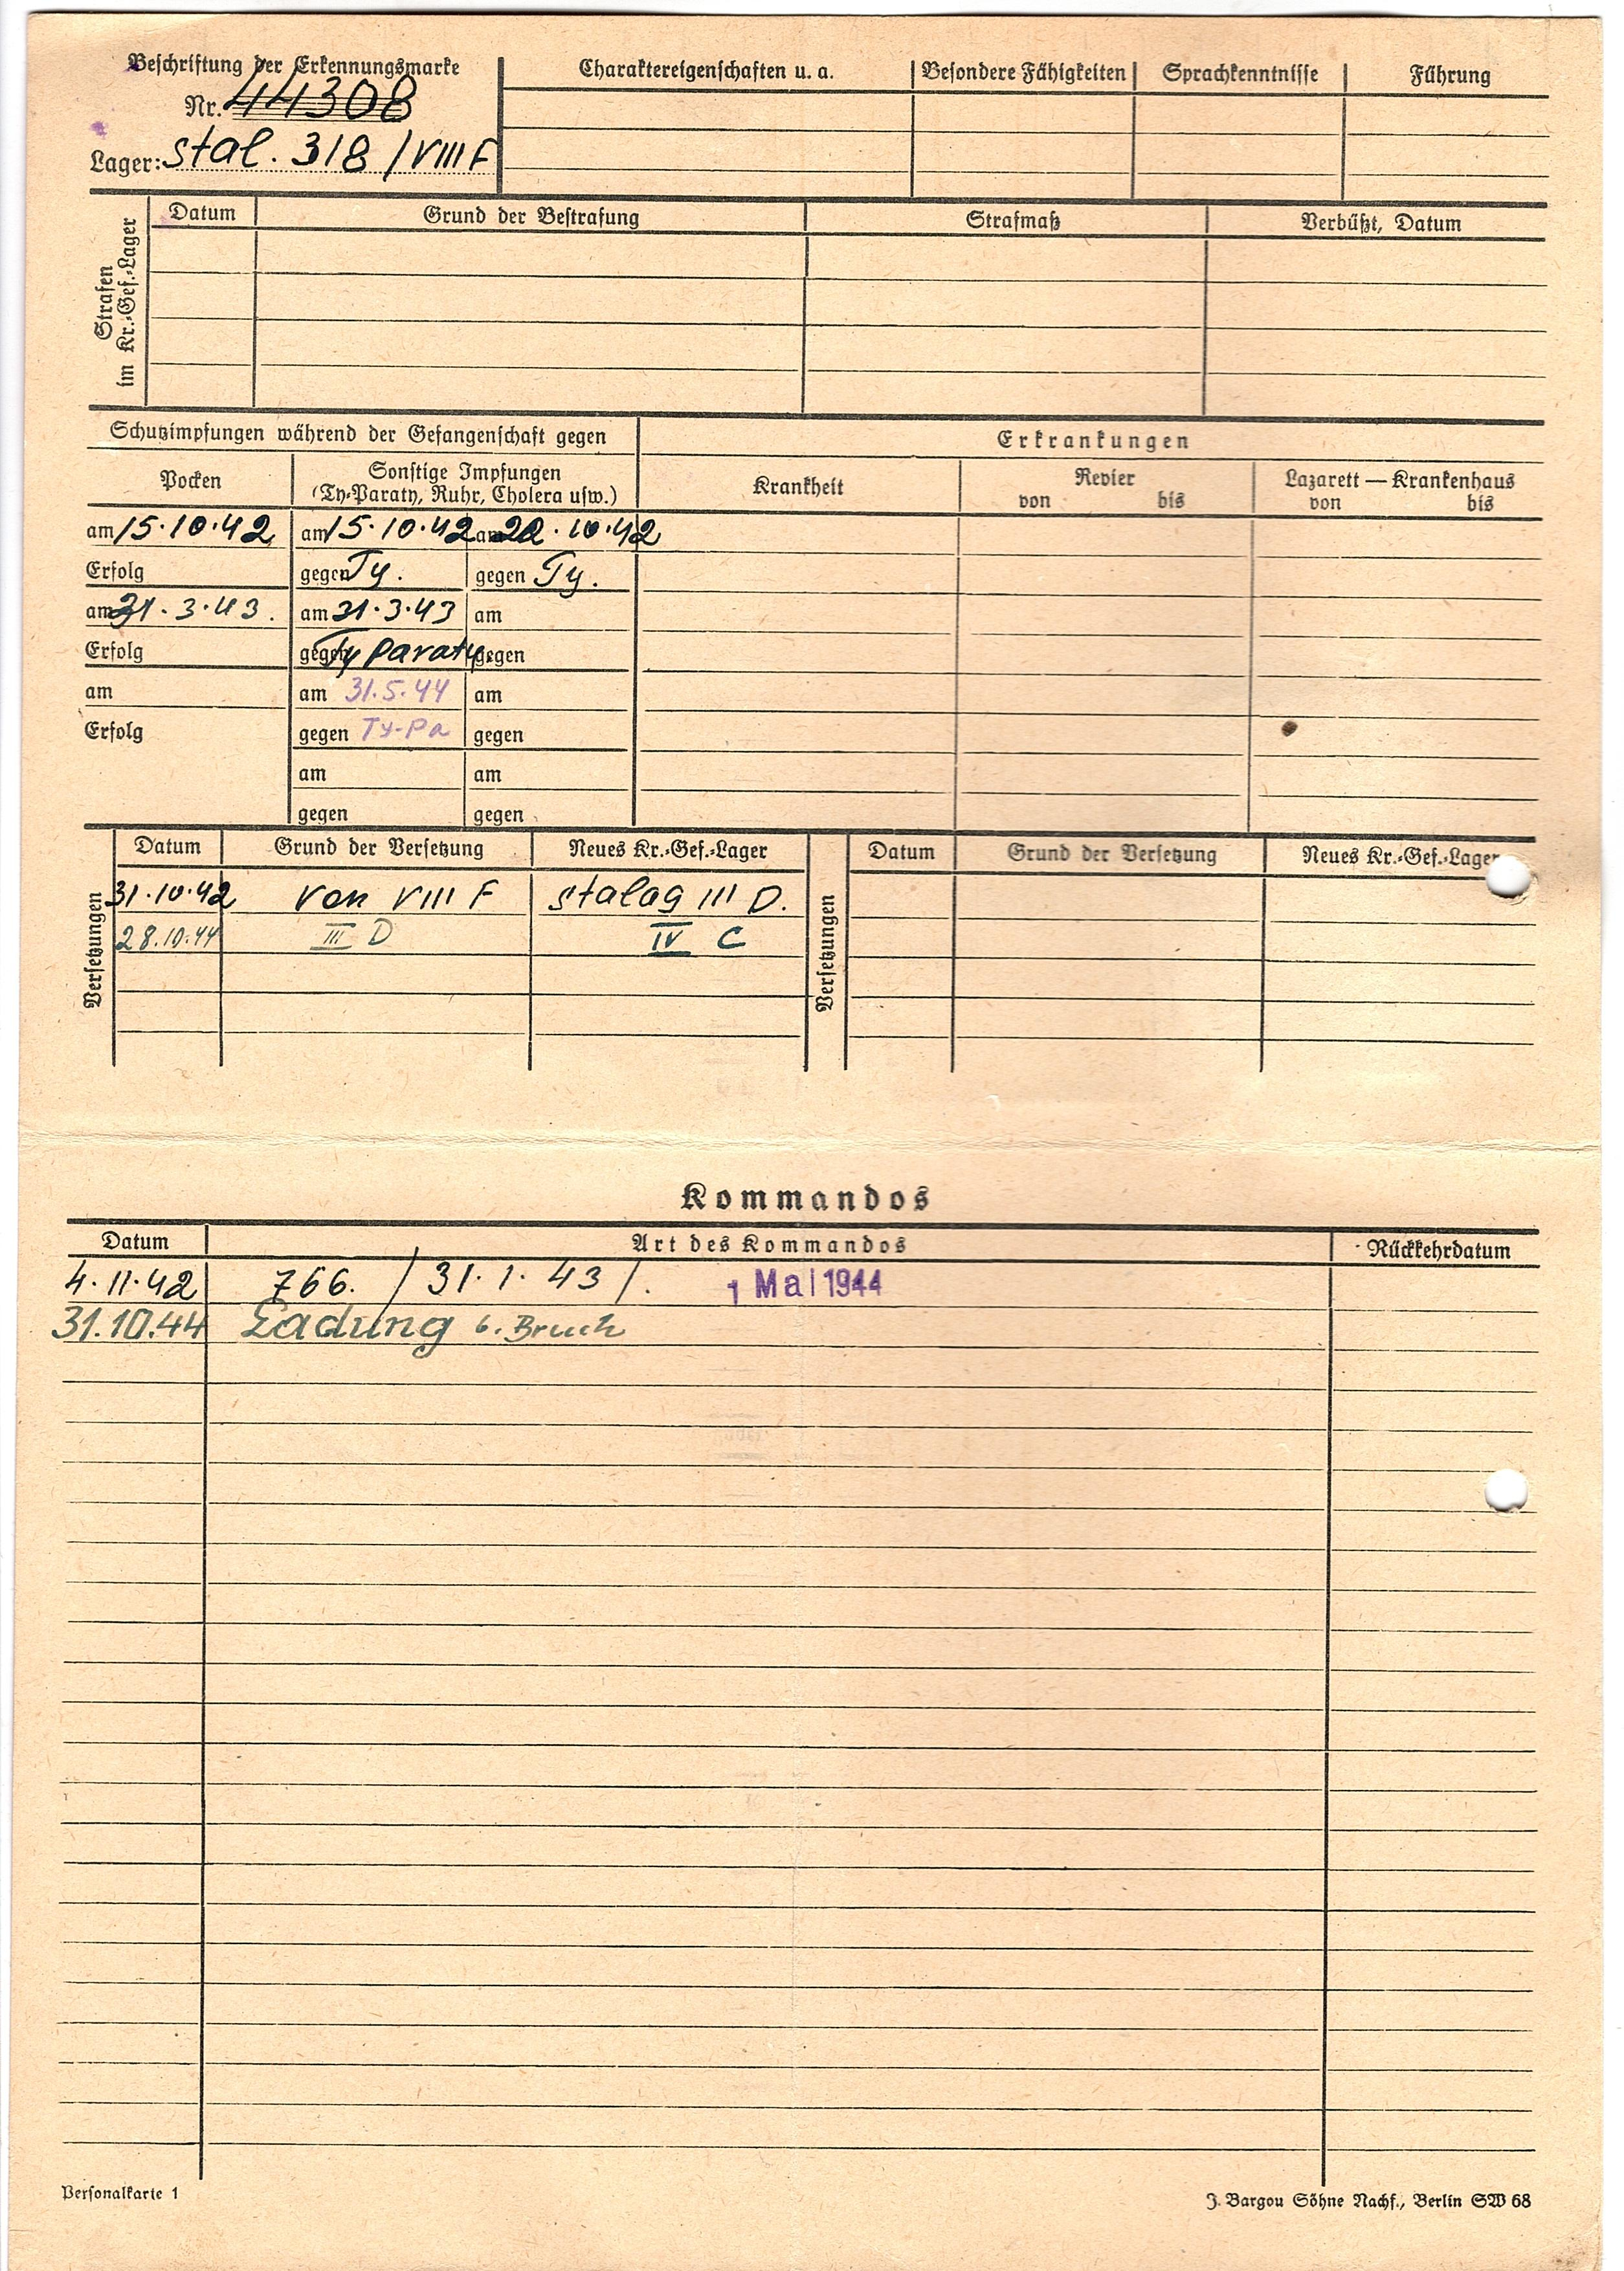 Beschriftung der Erkennungsmarke
Nr. 44308
Lager: Stal. 318 / VIII F
Charaktereigenschaften u. a.
Besondere Fähigkeiten
Sprachkenntnisse
Führung
Strafen
im Kr.-Gef.-Lager
Datum
Grund der Bestrafung
Strafmaß
Verbüßt, Datum
Schutzimpfungen während der Gefangenschaft gegen
Erkrankungen
Pocken
Sonstige Impfungen
(Ty-Paraty, Ruhr, Cholera usw.)
Krankheit
Revier
von bis
Lazarett — Krankenhaus
von bis
am 15.10.42 am 15.10.42 am 22.10.42
Erfolg gegen Ty. gegen Ty.
am 31.3.43. am 31.3.43 am
Erfolg gegen Ty Paraty. gegen
am am 31.5.44 am
Erfolg gegen Ty-Pa gegen
am am
gegen gegen
Versetzungen
Datum Grund der Versetzung Neues Kr.-Gef.-Lager
31.10.42 von VIII F Stalag III D.
28.10.44 III D IV C
Versetzungen
Datum Grund der Versetzung Neues Kr.-Gef.-Lager
Kommandos
Datum Art des Kommandos Rückkehrdatum
4.11.42 766. / 31.1.43 /. 1 Mai 1944
31.10.44 Ladung b. Bruch
Personalkarte 1
J. Bargou Söhne Nachf., Berlin SW 68